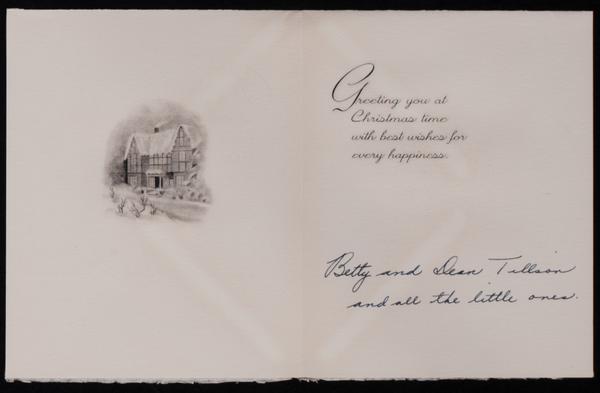 Greeting you at
Christmas time
with best wishes for
every happiness.
Betty and Dean Tillson
and all the little ones.